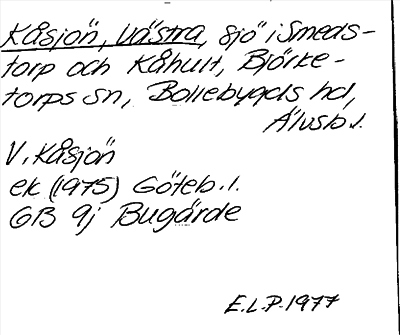 Kåsjön, Västra, sjö i Smeds-
torp och Kåhult, Björke-
torps sn, Bollebygds hd,
Älvsb.l.
V. Kåsjön
ek (1975) Göteb.l.
GB 9j Bugärde
E.L.P. 1977